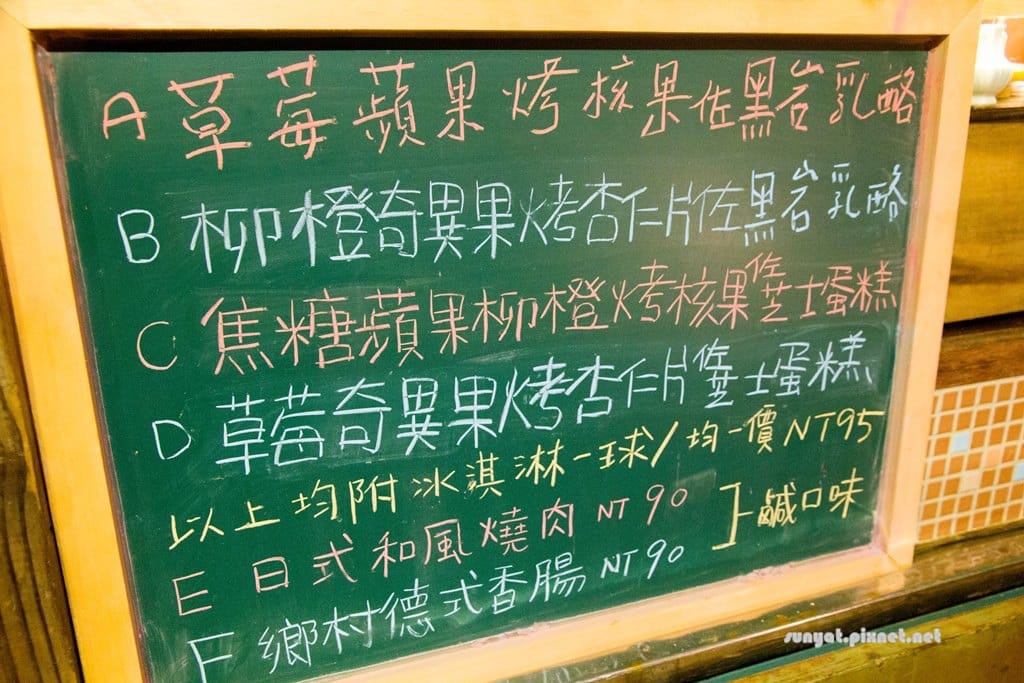 A 草莓蘋果烤核果佐黑岩乳酪
B 柳橙奇異果烤杏仁片佐黑岩乳酪
C 焦糖蘋果柳橙烤核果佐芝士蛋糕
D 草莓奇異果烤杏仁片佐芝士蛋糕
以上均附冰淇淋一球/均一價NT95
E 日式和風燒肉 NT 90
F 鄉村德式香腸 NT 90
鹹口味
sunyat.pixnet.net